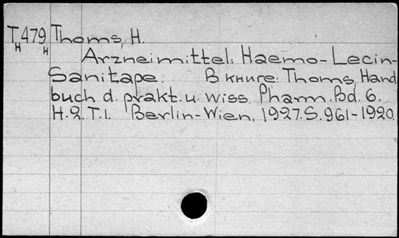 T479 Thoms, H.
H H
Arzneimittel: Haemo-Lecin-
Sanitape. В книге: Thoms, Hand
buch d. prakt. u. wiss. Pharm. Bd. 6.
H. 2. T. 1. Berlin-Wien, 1927. S. 961-1920.